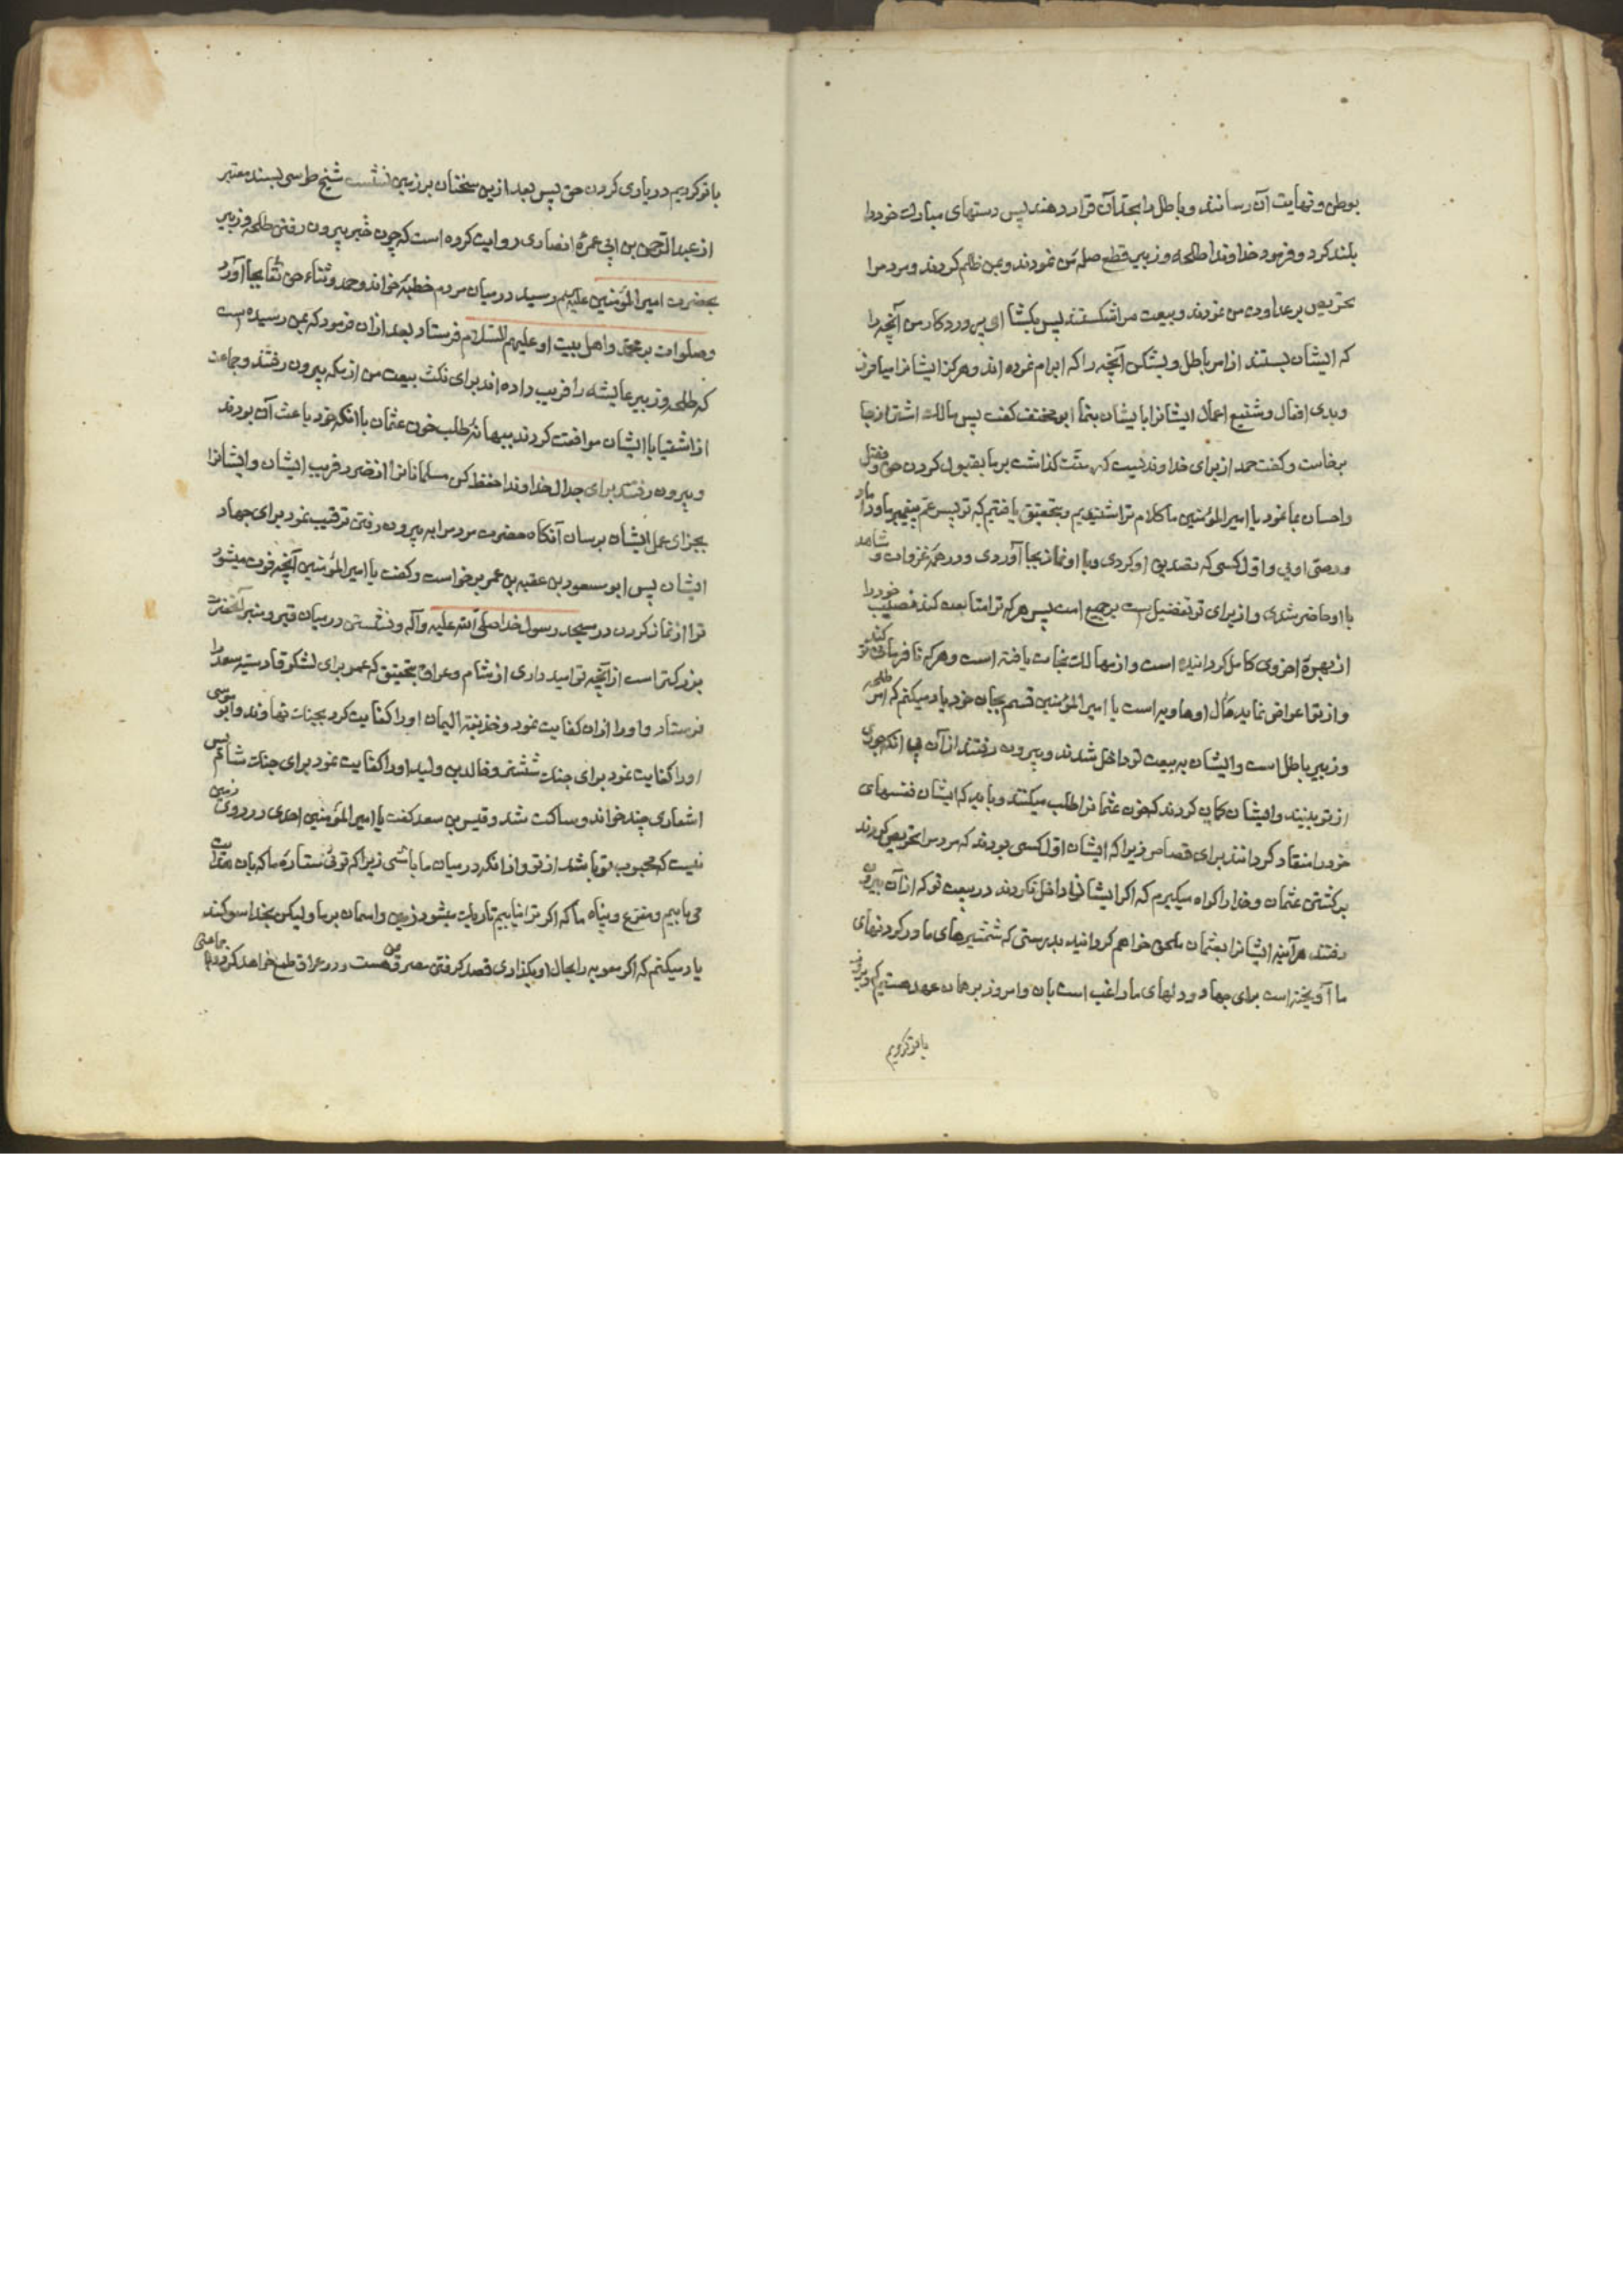 بوطن و نهایت آن رسانند و باطل را بجای آن قرار دهند پس دستهای مبارک خود را
بلند کرد و فرمود خداوندا طلحه و زبیر قطع صله من نمودند و بمن ظلم کردند و مردم را
تحریص بر عداوت من نمودند و بیعت مرا شکستند پس بکشا ای پروردکار من آنچه را
که ایشان بستند از امر باطل و بشکن آنچه را که ابرام نموده اند و هرکز ایشانرا میامرز
و بدی افعال و شنیع اعمال ایشانرا بایشان بنما ابو مخنف کفت پس مالک اشتر از جا
برخاست و کفت حمد از برای خداوندیست که منت کذاشت بر ما بقبول کردن حق و فضل
و احسان بما نمود یا امیرالمؤمنین ما کلام ترا شنیدیم و بتحقیق یافتیم که تو پسر عم پیغمبر ما و داماد
و وصی اویی و اول کسی که تصدیق او کردی و با او نماز بجا آوردی و در همه غزوات و شاهد
با او حاضر شدی و از برای تو تفضیل است بر جمیع امت پس هرکه ترا متابعت کند نصیب خود را
از بهره اخروی کامل کردانیده است و از مهالک نجات یافته است و هرکه نافرمانی تو کند
و از تو اعراض نماید مآل او هاویه است یا امیرالمؤمنین قسم بجان خود یاد میکنم که امر طلحه
و زبیر باطل است و ایشان به بیعت تو داخل شدند و بیرون رفتند از آن بی انکه جوری
از تو ببینند و ایشان کمان کردند که خون عثمانرا طلب میکنند و باید که ایشان نفسهای
خود را منقاد کردانند برای قصاص زیرا که ایشان اول کسی بودند که مردم را تحریص کردند
بر کشتن عثمان و خدا را کواه میکیرم که اکر ایشان داخل نکردند در بیعت تو که از آن بیرون
رفتند هرآینه ایشانرا بعثمان ملحق خواهم کردانید بدرستی که شمشیرهای ما در کردنهای
ما آویخته است برای جهاد و دلهای ما راغب است بآن و امروز بر همان عهد هستیم که دیروز
با تو کردیم
با تو کردیم در یاری کردن حق پس بعد از این سخنان بر زمین نشست شیخ طوسی بسند معتبر
از عبدالرحمن بن ابی عمره انصاری روایت کرده است که چون خبر بیرون رفتن طلحه و زبیر
بحضرت امیرالمؤمنین علیه السلم رسید در میان مردم خطبه خواند و حمد و ثناء حق تعالی بجا آورد
و صلوات بر محمد و اهل بیت او علیهم السلام فرستاد بعد از ان فرمود که بمن رسیده است
که طلحه و زبیر عایشه را فریب داده اند برای نکث بیعت من از مکه بیرون رفتند و جماعت
از اشقیا با ایشان موافقت کردند ببهانه طلب خون عثمان با انکه خود باعث آن بودند
و بیرون رفتند برای جدال خداوندا حفظ کن مسلمانانرا از ضرر و فریب ایشان و ایشانرا
بجزای عمل ایشان برسان آنکاه حضرت مردم را به بیرون رفتن ترغیب نمود برای جهاد
ایشان پس ابو مسعود بن عقبه بن عمر برخواست و کفت یا امیرالمؤمنین آنچه فوت میشود
ترا از نماز کردن در مسجد رسول خدا صلی الله علیه وآله و نشستن در میان قبر و منبر آنحضرت
بزرکتر است از آنچه تو امید داری از شام و عراق بتحقیق که عمر برای لشکر قادسیه سعد را
فرستاد و او را از ان کفایت نمود و حذیفة الیمان او را کفایت کرد بجنک نهاوند و ابو موسی
او را کفایت نمود برای جنک ششتر و خالد بن ولید او را کفایت نمود برای جنک شام پس
اشعاری چند خواند و ساکت شد و قیس بن سعد کفت یا امیرالمؤمنین احدی در روی زمین
نیست که محبوب تو باشد از تو و از انکه در میان ما باشی زیرا که توئی ستاره ما که بآن هدایت
می یابیم و مفزع و پناه ما که اکر ترا نیابیم تاریک میشود زمین و اسمان بر ما ولیکن بخدا سوکند
یاد میکنم که اکر معویه را بحال او بکذاری قصد کرفتن مصر و یمن هست و در عراق طمع خواهد کرد و با جماعتی